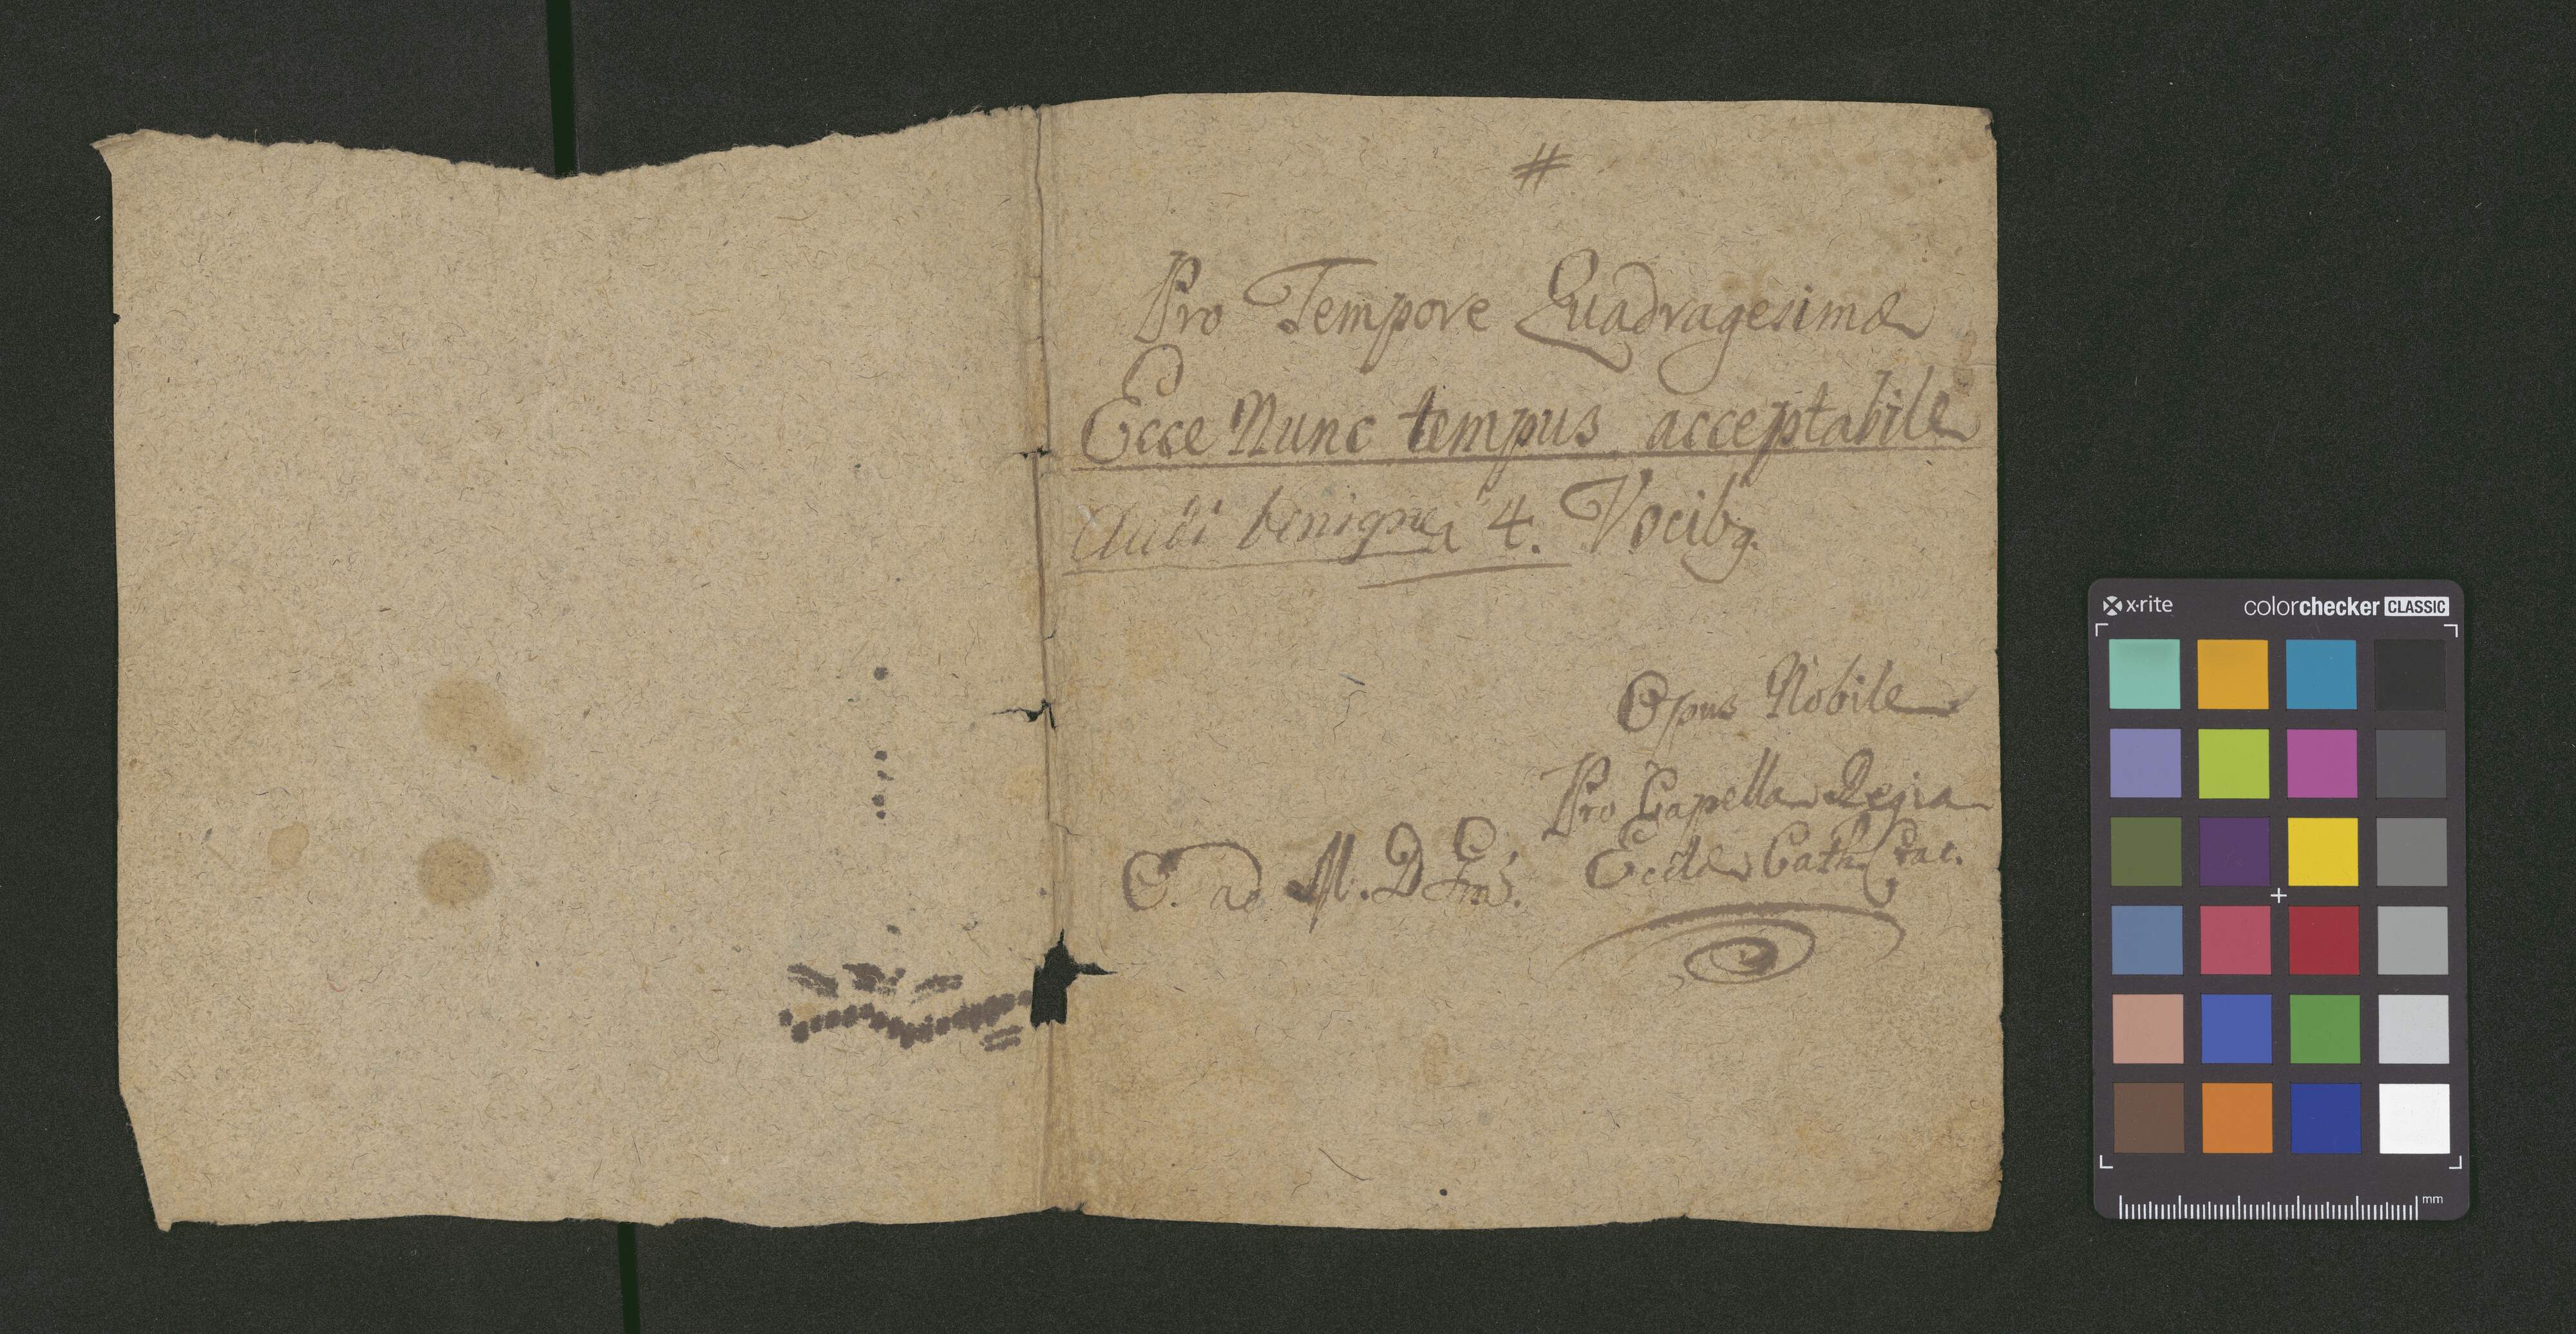 #
Pro Tempore Quadragesimæ
Ecce Nunc tempus acceptabile
Audi benigne à 4. Vocibq.
Opus Nobile
Pro Capella Regia
Eccłæ Cath. Crac.
C. ad M. D.
x-rite colorchecker CLASSIC
mm